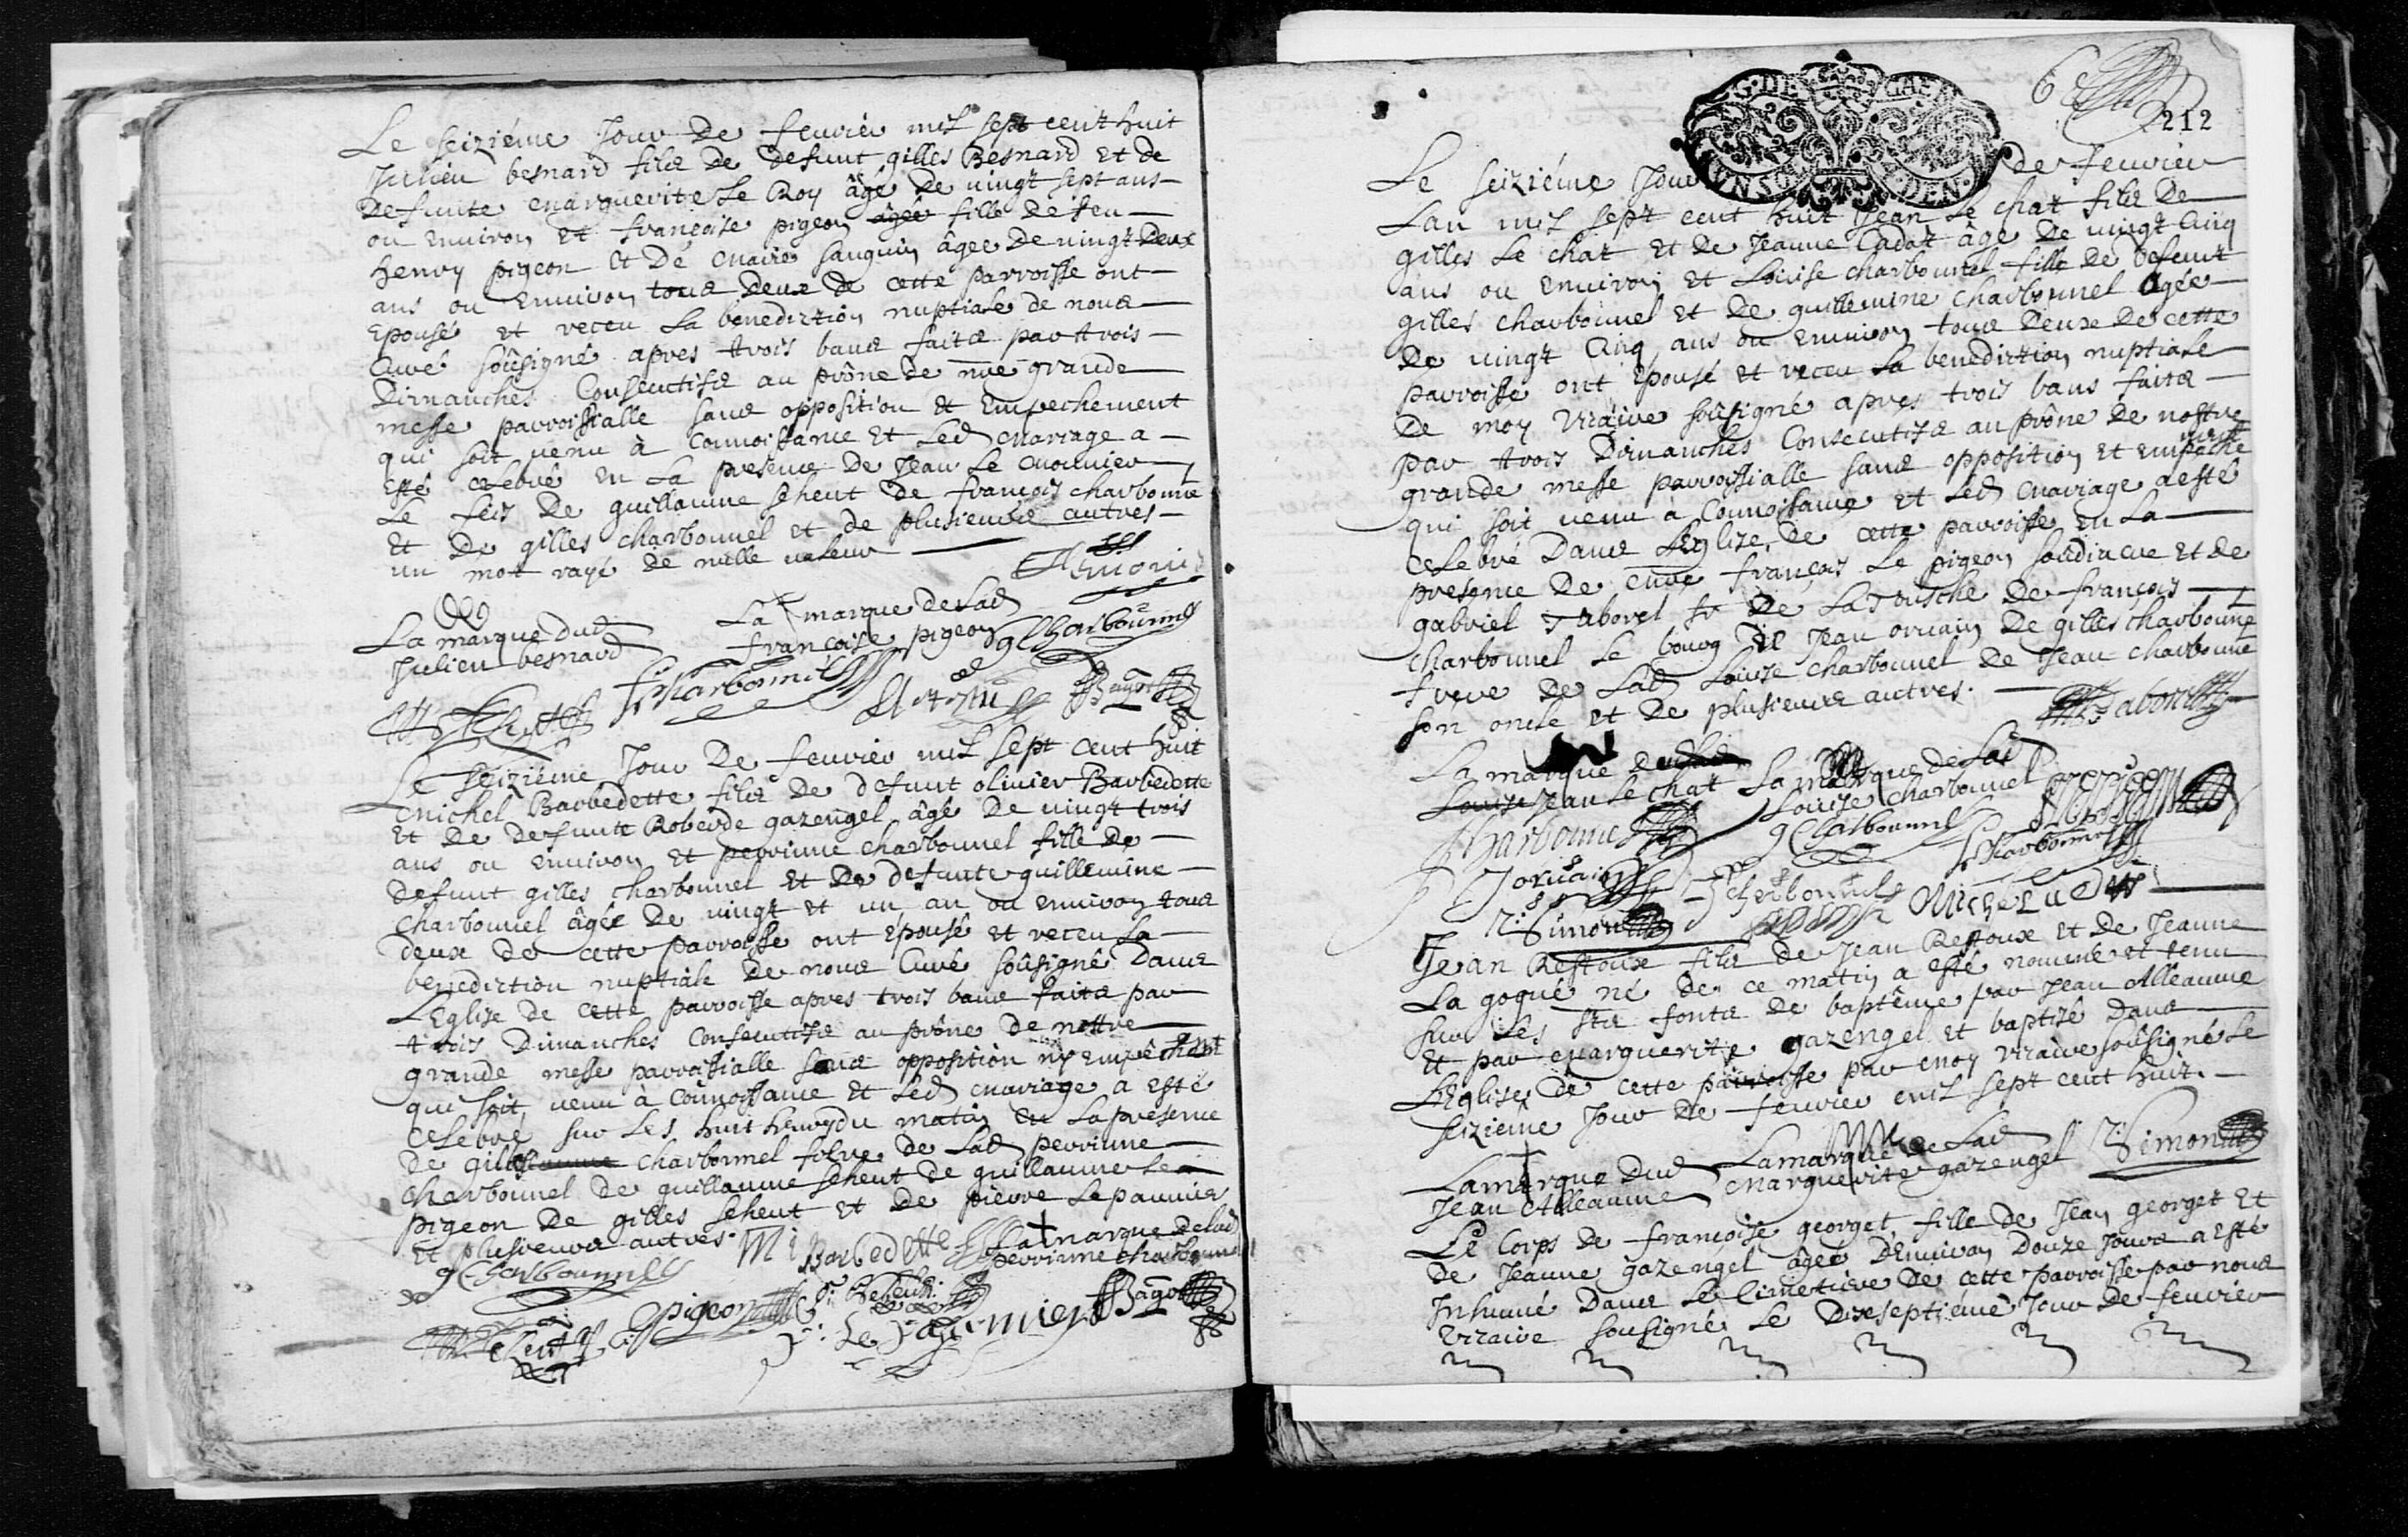 Le seiziéme Jour De feuvier mil sept cent huit
Julien besnard fils de defunt gilles Besnard et de
defunte marguerite Le Roy âgé de vingt sept ans
ou environ et françoise pigeon âgée fille de feu
henry pigeon et De marie sanguin âgee De vingt deux
ans ou Environ tous deux de cette parroisse ont
Epousé et receu La benediction nuptiale de nous
Curé soûsigné apres trois bans faits par trois
Dimanches Consecutifs au prône de nre grande
messe parroissialle sans opposition et Empechement
qui soit venu à connoissance et Led mariage a
esté celebré en La presence de Jean Le mounier
Le feis De guillaume seheut de françois charbonne
Et De gilles charbonnel et de plusieurs autres
un mot rayé de nulle valeur
La marque dud
Julien besnard
La marque de Lad
françoise pigeon
gCharbonnel
f Charbonnel
Bagot
Le seiziéme Jour De feuvier mil sept cent huit
michel Barbedette fils De defunt olivier Barbedette
Et de defunte Roberde gazengel âgé De vingt trois
ans ou environ et perrinne charbonnel fille de
defunt gilles charbonnel et de defunte guillemine
charbonnel âgée De vingt et un an ou environ tous
deux de cette parroisse ont épousé et receu La
benediction nuptiale De nous Curé soûsigné Dans
L'Eglise de cette parroisse apres trois bans faits par
trois Dimanches consecutifs au prône de nostre
grande messe parroissialle sans opposition ny empêchemt
qui soit venu à Connoissance et Led mariage a esté
celebré sur Les huit heures du matin en La presence
de gilles charbonnel frere de Lad perrinne
charbonnel de guillaume seheut de guillaume Le
pigeon De gilles seheut et de pierre Lepaumier
Et plusieurs autres
Mi Barbedette
La marque de lad
perrinne charbonne
gCharbonnel
gpigeon
p: Le paumier
Bagot
6
212
G·DE CAEN
UN SOL DEN
Le seiziéme Jour de feuvier
Lan mil sept cent huit Jean Le chat fils De
gilles Le chat et de Jeanne Cadot âgé de vingt Cinq
ans ou environ et Louise charbonnel fille de defunt
gilles charbonnel et de guillemine charbonnel âgée
De vingt Cinq ans ou Environ tous deux de cette
parroisse ont Epousé et receu La benediction nuptiale
De moy vicaire soûsigné apres trois bans faits
par trois Dimanches Consecutifs au prône de nostre
grande messe parroissialle sans opposition et empêchemt
qui soit venu à Connoissance et Led mariage a esté
celebré Dans L'Eglise de cette parroisse en La
presence De mre françois Le pigeon soûdiacre et de
gabriel Taborel sr De La Tousche De françois
charbonnel Le bourg de Jean orvain De gilles charbonne
frere de Lad Louise charbonnel de Jean charbonne
son oncle et De plusieurs autres.
Taborel
La marque dud
Jean Le chat
La marque de Lad
Louise charbonnel
JCharbonnel
gCharbonnel
f Charbonnel
J orvain
Simon
Michel
Jean Restoux fils de Jean Restoux et de Jeanne
La goqué né de ce matin a esté nommé et tenu
sur Les sts fonts de baptême par Jean Alleaume
Et par marguerite gazengel et baptisé Dans
L'Eglise de cette parroisse par moy vicaire soûsigné Le
seizieme Jour De feuvier mil sept cent huit.
La marque Dud
Jean Alleaume
La marque de Lad
marguerite gazengel
Simon
Le Corps de françoise georget fille de Jean georget Et
De Jeanne gazengel âgée D'Environ Douze Jours a esté
Inhumé Dans Le Cimetiere De cette parroisse par nous
vicaire sousigné Le Dixseptiéme Jour de feuvier